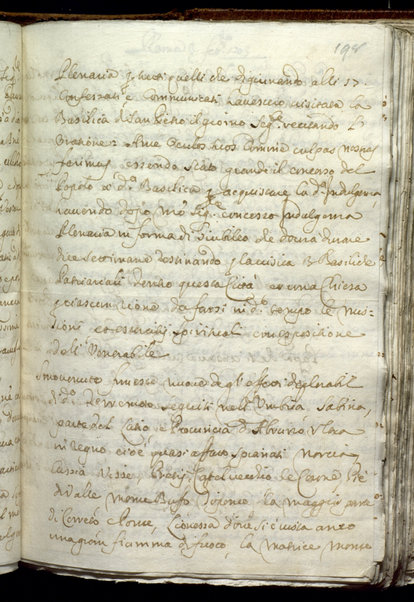 198
Plenaria p tutti quelli che digiunando alli 17
Confessati e Communicati havessero visitata la
Basilica di San Pietro il giorno seg.te recitando l'
Oratione Ante Oculos tuos Domine culpas nostras
ferimus essendo stato grande il concorso del
Popolo a d.a Basilica p acquistare la d.a Indulgenza
havendo dopo N.ro Sig.re concesso Indulgenza
Plenaria in forma di Giubileo che dovrà durare
dieci settimane destinando p la visita 3 Basiliche
Patriarcali dentro questa Città et una Chiesa
p ciascun Rione da farsi in d.o tempo le Missioni
et essercitij spirituali con espositione
del Venerabile
pervenuto funeste nuove de gl'effetti deplorabili
d.o Terremoto seguiti nell'Umbria Sabina,
parte del Lazio e Provincia d'Abruzzo Ultra
in Regno cioè quasi affatto spianati Norcia,
Cascia Visse, Preci, Castelvecchio le Cerne Pie
di Valle Monte Bufo la maggior parte
di Cerreto Leonessa dove si è vista anco
una gran fiamma di fuoco, la Matrice Monte